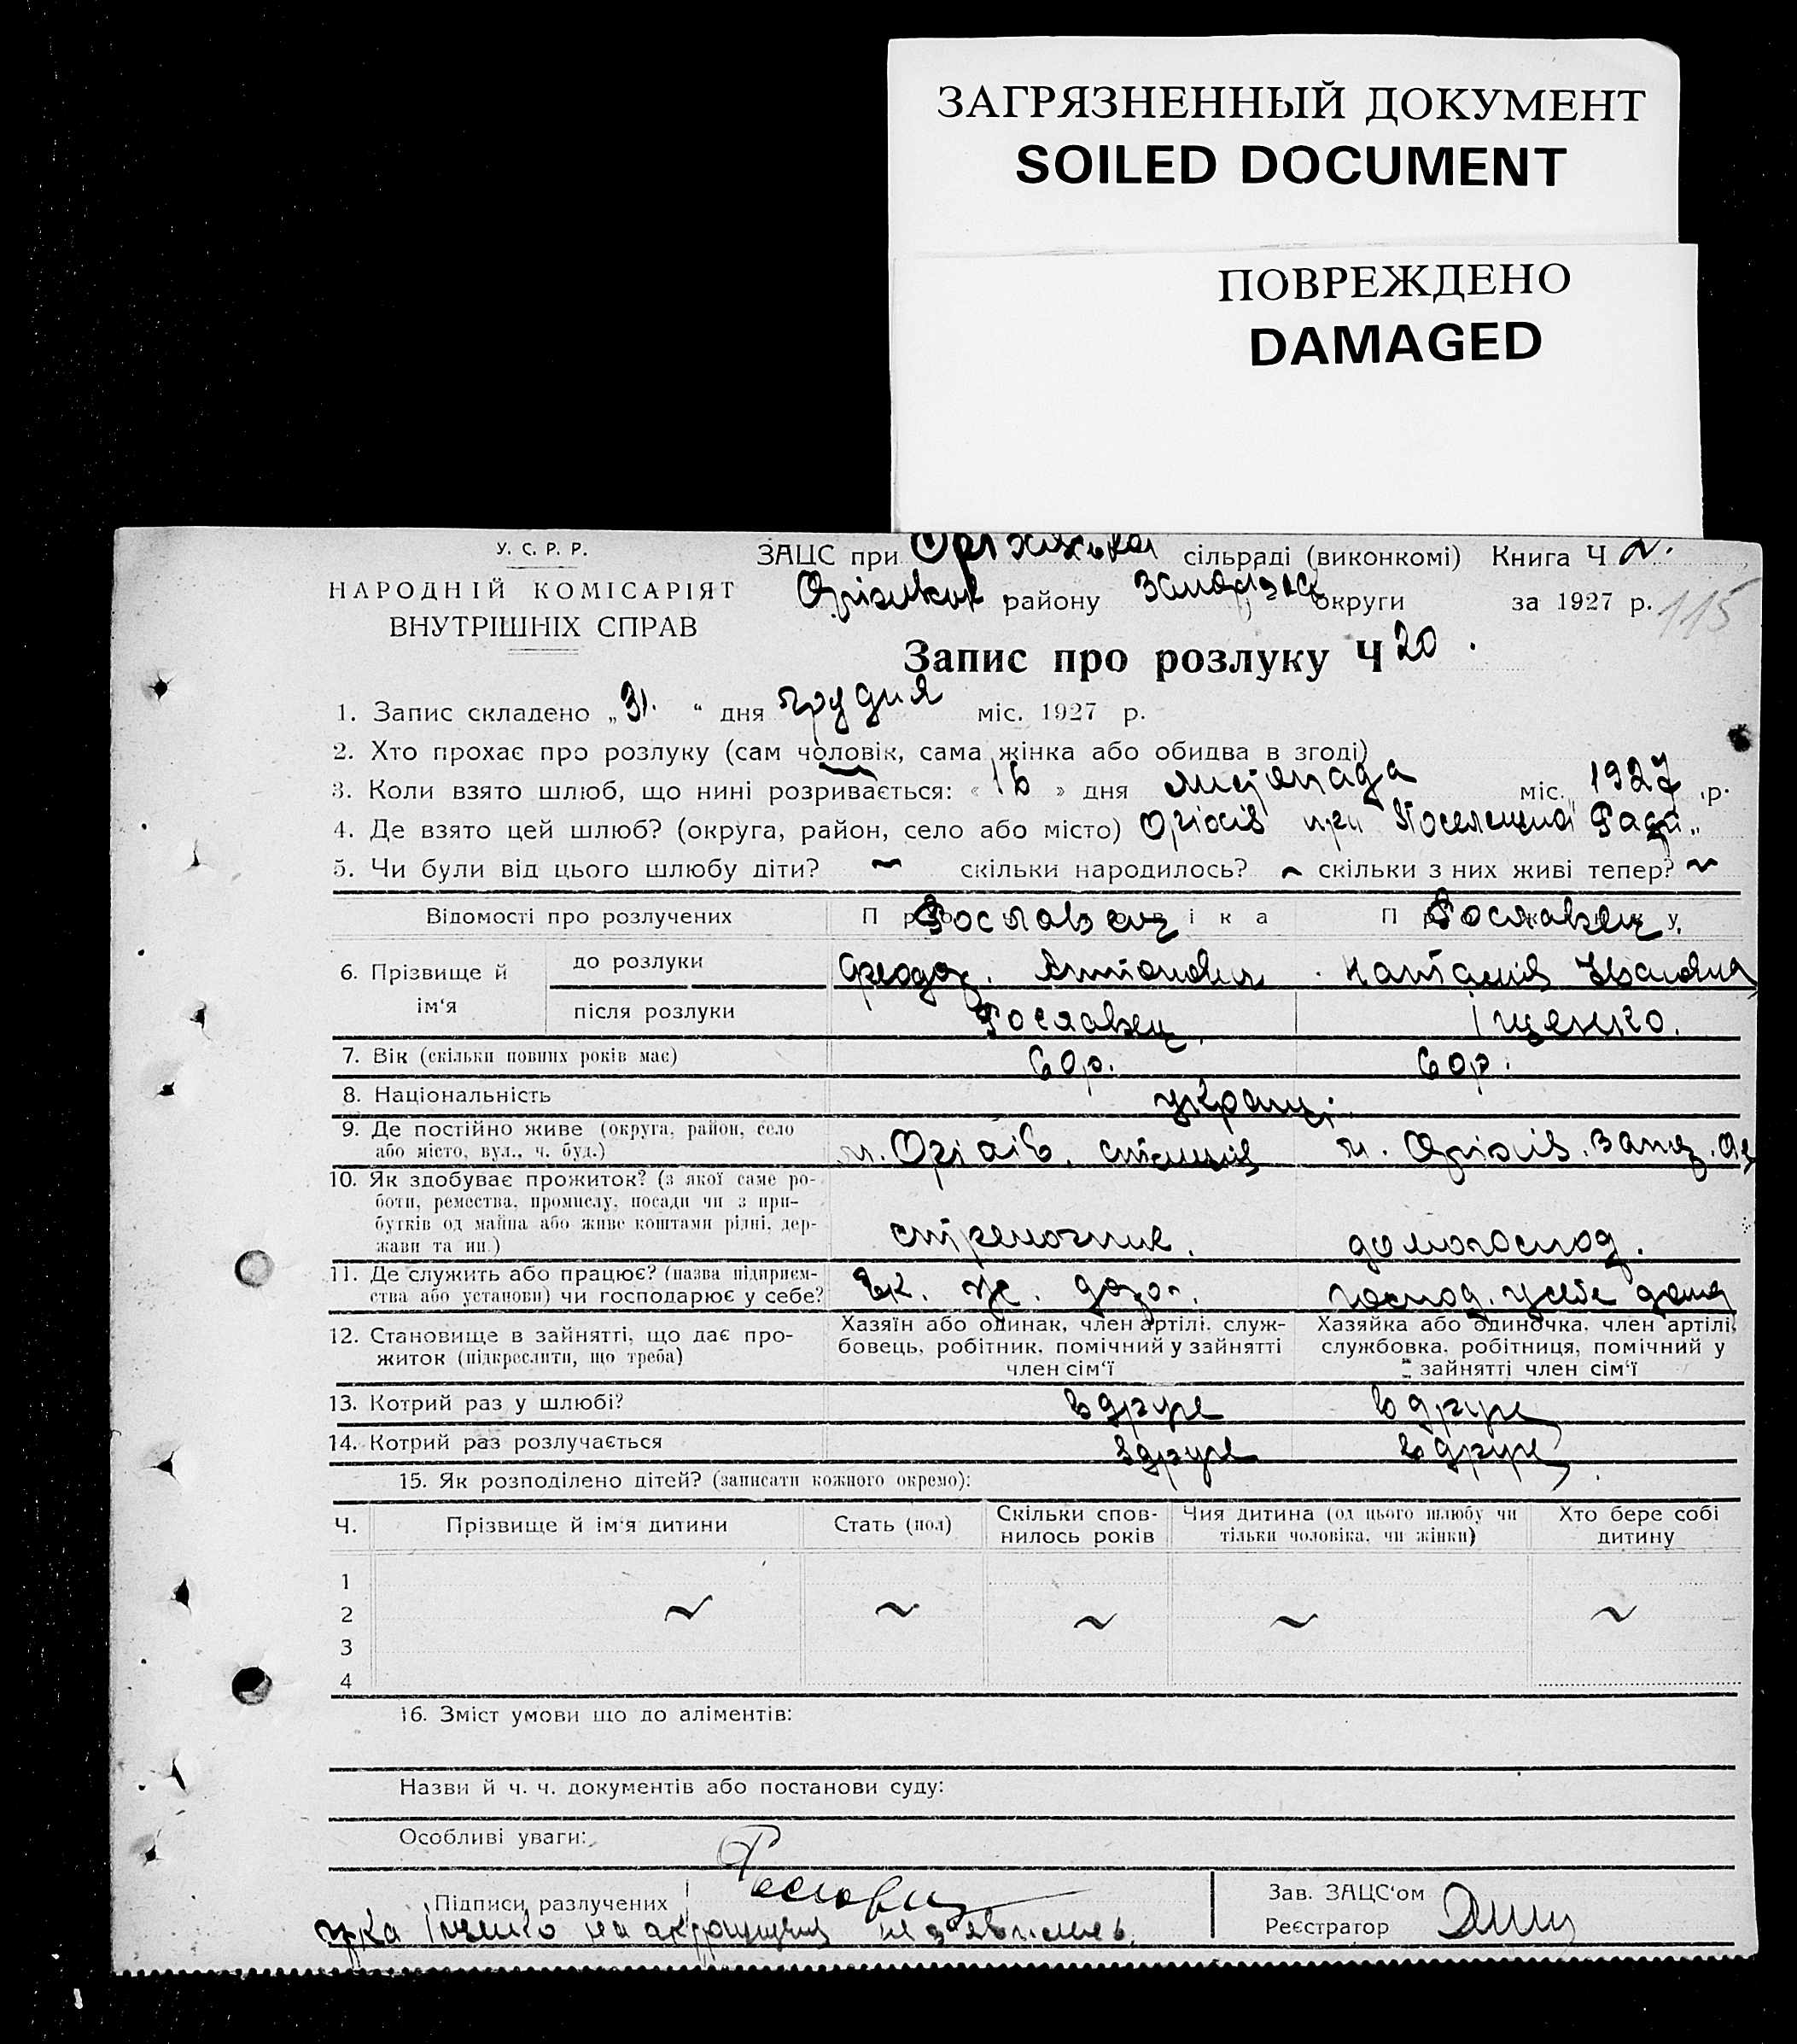 ЗАГРЯЗНЕННЫЙ ДОКУМЕНТ
SOILED DOCUMENT
ПОВРЕЖДЕНО
DAMAGED
У. С. Р. Р.
НАРОДНІЙ КОМІСАРІЯТ
ВНУТРІШНІХ СПРАВ
ЗАЦС при Оріхівська сільраді (виконкомі) Книга Ч 2.
району округи за 1927 р. 115
Запис про розлуку Ч 20.
1. Запис складено „31.“ дня грудня міс. 1927 р.
2. Хто прохає про розлуку (сам чоловік, сама жінка або обидва в згоді)
3. Коли взято шлюб, що нині розривається: «16» дня листопада міс. 1927 р.
4. Де взято цей шлюб? (округа, район, село або місто) Оріхів при
5. Чи були від цього шлюбу діти? ~ скільки народилось? ~ скільки з них живі тепер? ~
Відомості про розлучених
Рославец Рославец
6. Прізвище й ім'я
до розлуки Антонович Наталія Івановна
після розлуки Рославец Іщенко.
7. Вік (скільки повних років має) 60р. 60р.
8. Національність україн.
9. Де постійно живе (округа, район, село або місто, вул., ч. буд.) м. Оріхів, станція м. Оріхів. Запор. Ок
10. Як здобуває прожиток? (з якої саме роботи, ремества, промислу, посади чи з прибутків од майна або живе коштами рідні, держави та ин.) стрелочник. домогоспод.
11. Де служить або працює? (назва підприємства або установи) чи господарює у себе? Ек. ж. дор. господ. у себе дома
12. Становище в зайнятті, що дає прожиток (підкреслити, що треба)
Хазяїн або одинак, член артілі, службовець, робітник, помічний у зайнятті член сім'ї
Хазяйка або одиночка, член артілі, службовка, робітниця, помічний у зайнятті член сім'ї
13. Котрий раз у шлюбі? вдруге вдруге
14. Котрий раз розлучається вдруге вдруге
15. Як розподілено дітей? (записати кожного окремо):
Ч. Прізвище й ім'я дитини Стать (пол) Скільки сповнилось років Чия дитина (од цього шлюбу чи тільки чоловіка, чи жінки) Хто бере собі дитину
1
2 ~ ~ ~ ~ ~
3
4
16. Зміст умови що до аліментів:
Назви й ч. ч. документів або постанови суду:
Особливі уваги:
Підписи разлучених Рославец
Зав. ЗАЦС'ом
Реєстратор
Іщенко на